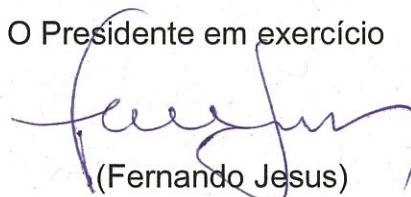 O Presidente em exercício
(Fernando Jesus)